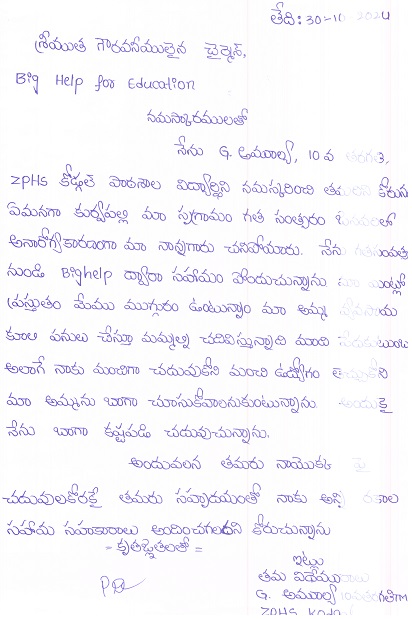 తేది: 30-10-2024
శ్రీయుత గౌరవనీయులైన ఛైర్మెన్,
Big Help for Education
నమస్కారములతో
నేను G. అమూల్య, 10 వ తరగతి,
ZPHS కోడ్గల్ పాఠశాల విద్యార్థిని నమస్కరించి తమలని కోరునది
ఏమనగా కుర్వపల్లి మా స్వగ్రామం గత సంత్సరం
అనారోగ్యకారణంగా మా నాన్నగారు చనిపోయారు. నేను గతసంవత్స
నుండి Bighelp ద్వారా సహాయం పొందుచున్నాను మా ఇంట్లో
ప్రస్తుతం మేము ముగ్గురం ఉంటున్నాం మా అమ్మ వ్యవసాయ
కూలి పనులు చేస్తూ మమ్మల్ని చదివిస్తున్నాది
అలాగే నాకు మంచిగా చదువుకొని మంచి ఉద్యోగం తెచ్చుకొని
మా అమ్మను బాగా చూసుకోవాలనుకుంటున్నాను. అందుకై
నేను బాగా కష్టపడి చదువుచున్నాను.
అందువలన తమరు నాయొక్క పై
చదువులకొరకై తమరు సహృదయంతో నాకు అన్ని రకాల
సహాయ సహకారాలు అందించగలరని కోరుచున్నాను
- కృతజ్ఞతలతో =
ఇట్లు
తమ విధేయురాలు
G. అమూల్య 10వతరగతిTM
ZPHS Kodgal